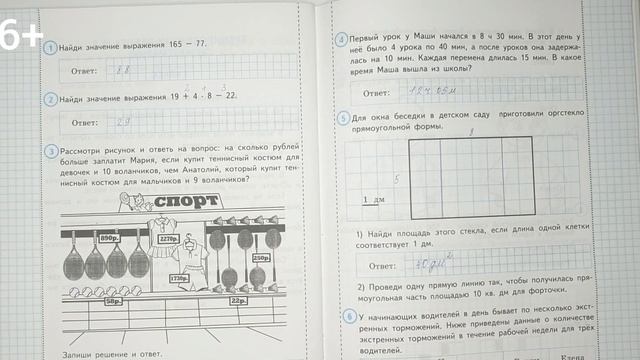 6+
1 Найди значение выражения 165 − 77.
Ответ: 88
2 1 3
2 Найди значение выражения 19 + 4 · 8 − 22.
Ответ: 29
3 Рассмотри рисунок и ответь на вопрос: на сколько рублей
больше заплатит Мария, если купит теннисный костюм для
девочек и 10 воланчиков, чем Анатолий, который купит тен-
нисный костюм для мальчиков и 9 воланчиков?
СПОРТ
890р.
2270р.
250р.
1730р.
58р.
22р.
Запиши решение и ответ.
4 Первый урок у Маши начался в 8 ч 30 мин. В этот день у
неё было 4 урока по 40 мин, а после уроков она задержа-
лась на 10 мин. Каждая перемена длилась 15 мин. В какое
время Маша вышла из школы?
Ответ: 12 ч 05 м
5 Для окна беседки в детском саду приготовили оргстекло
прямоугольной формы.
8
5
1 дм
1) Найди площадь этого стекла, если длина одной клетки
соответствует 1 дм.
Ответ: дм²
2) Проведи одну прямую линию так, чтобы получилась пря-
моугольная часть площадью 10 кв. дм для форточки.
6 У начинающих водителей в день бывает по несколько экст-
ренных торможений. Ниже приведены данные о количестве
экстренных торможений в течение рабочей недели для трёх
водителей.
Елена